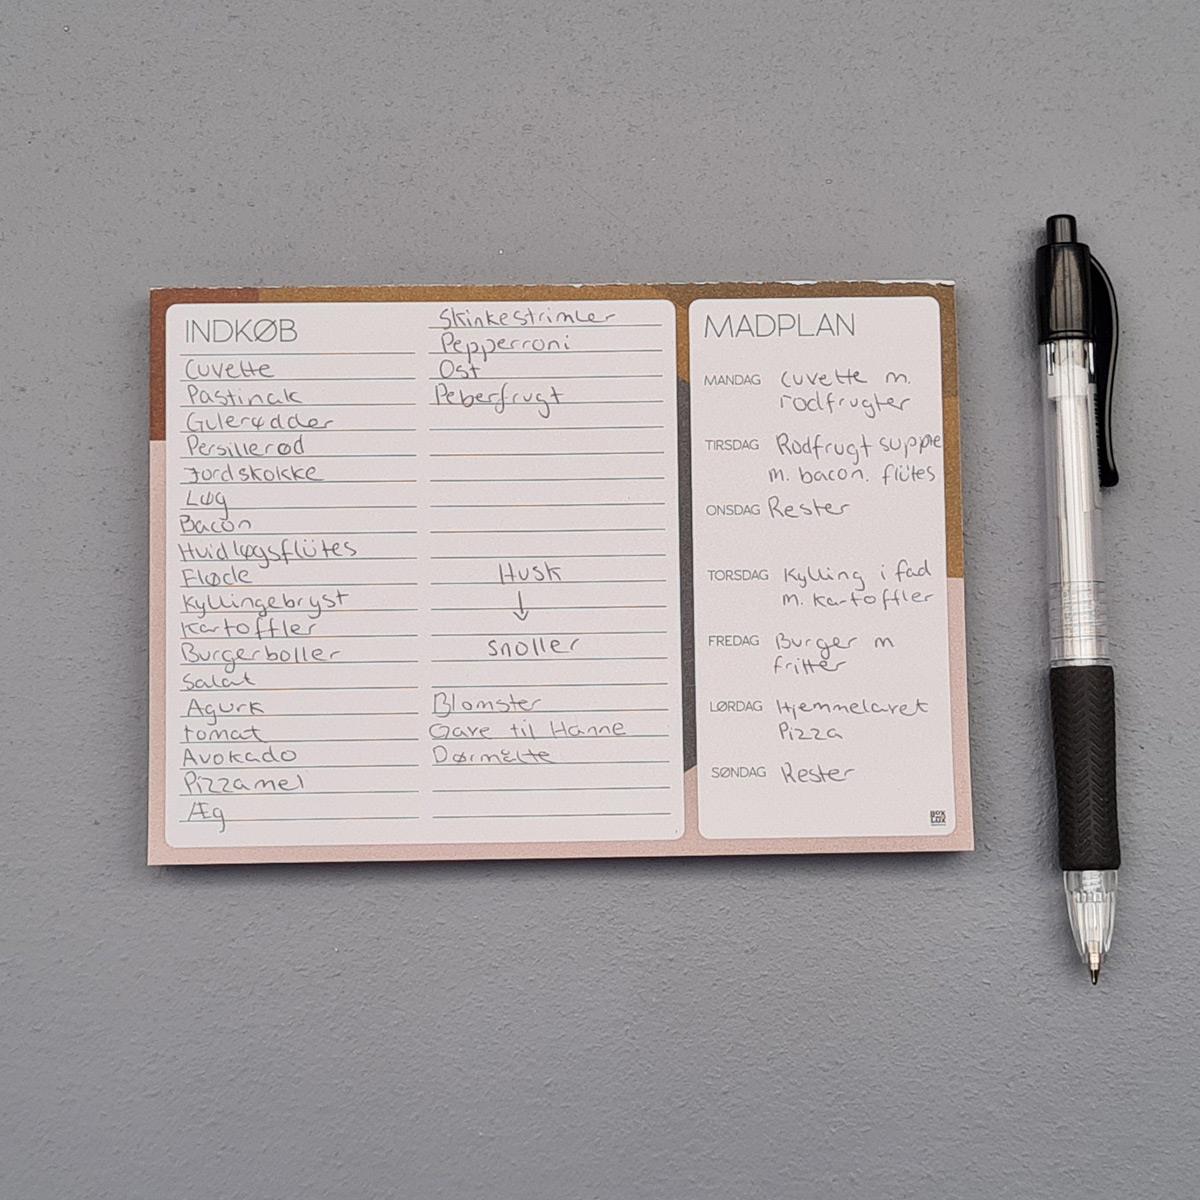 INDKØB
Cuvette
Pastinak
Gulerødder
Persillerød
Jordskokke
Løg
Bacon
Hvidløgsflütes
Fløde
Kyllingebryst
Kartoffler
Burgerboller
Salat
Agurk
tomat
Avokado
Pizzamel
Æg
Skinkestrimler
Pepperroni
Ost
Peberfrugt
Husk
↓
snoller
Blomster
Gave til Hanne
Dørmåtte
MADPLAN
MANDAG Cuvette m.
rodfrugter
TIRSDAG Rodfrugt suppe
m. bacon. flütes
ONSDAG Rester
TORSDAG Kylling i fad
m. kartoffler
FREDAG Burger m
fritter
LØRDAG Hjemmelavet
Pizza
SØNDAG Rester
BOX
LUX